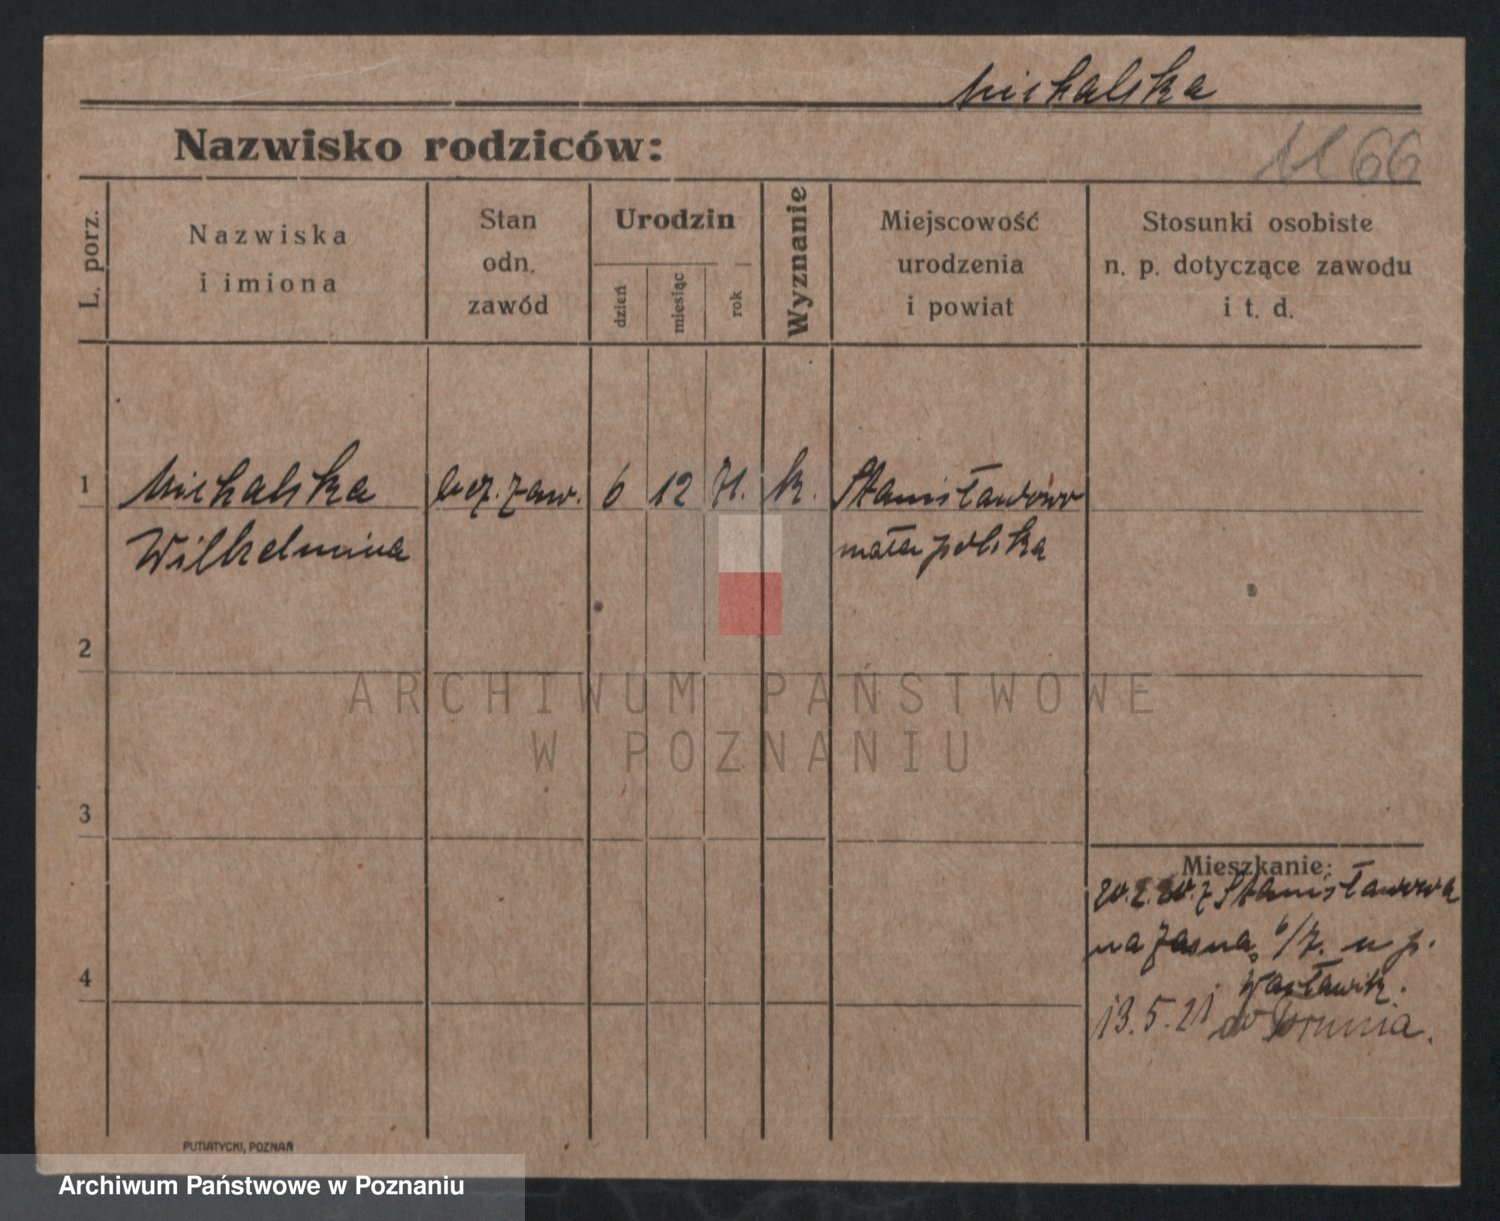 Michalska
Nazwisko rodziców:
1166
L. porz.
Nazwiska
i imiona
Stan
odn.
zawód
Urodzin
dzień
miesiąc
rok
Wyznanie
Miejscowość
urodzenia
i powiat
Stosunki osobiste
n. p. dotyczące zawodu
i t. d.
1 Michalska bez. zaw. 6 12 71. k. Stanisławów
Wilhelmina małapolska
2
ARCHIWUM PAŃSTWOWE
W POZNANIU
3
Mieszkanie:
20.2.20. z Stanisławowa
na Jasna 6/7. u p.
4
13.5.21 do Torunia.
PUTIATYCKI, POZNAŃ
Archiwum Państwowe w Poznaniu